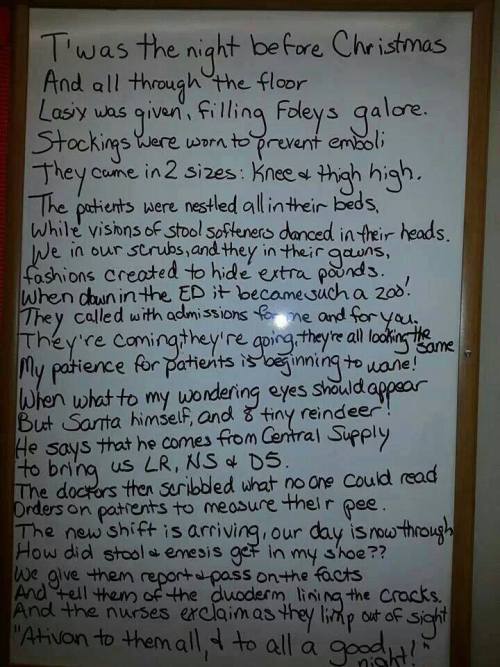 T'was the night before Christmas
And all through the floor
Lasix was given, filling Foleys galore.
Stockings were worn to prevent emboli
They came in 2 sizes: Knee & thigh high.
The patients were nestled all in their beds,
While visions of stool softeners danced in their heads.
We in our scrubs, and they in their gowns,
fashions created to hide extra pounds.
When down in the ED it became such a zoo!
They called with admissions for me and for you.
They're coming, they're going, they're all looking the same
My patience for patients is beginning to wane!
When what to my wondering eyes should appear
But Santa himself, and 8 tiny reindeer!
He says that he comes from Central Supply
to bring us LR, NS & D5.
The doctors then scribbled what no one could read
Orders on patients to measure their pee.
The new shift is arriving, our day is now through
How did stool & emesis get in my shoe??
We give them report & pass on the facts
And tell them of the duoderm lining the cracks.
And the nurses exclaim as they limp out of sight
"Ativan to them all, & to all a good night!"